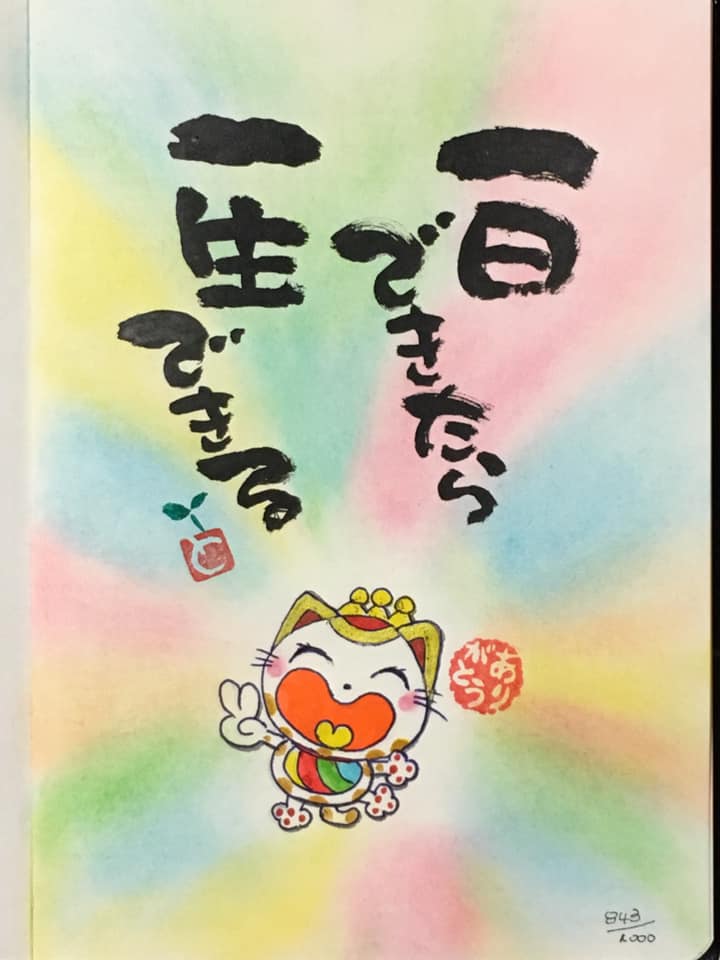 一日
できたら
一生
できる
ありがとう
843/1000